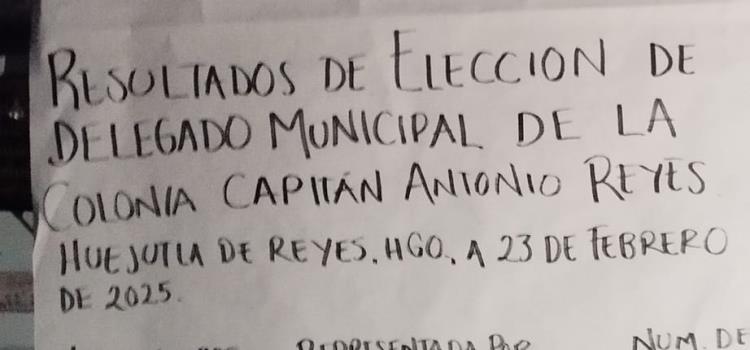 RESULTADOS DE ELECCION DE
DELEGADO MUNICIPAL DE LA
COLONIA CAPITÁN ANTONIO REYES
HUEJUTLA DE REYES, HGO, A 23 DE FEBRERO
DE 2025.
REPRESENTADA POR NUM. DE